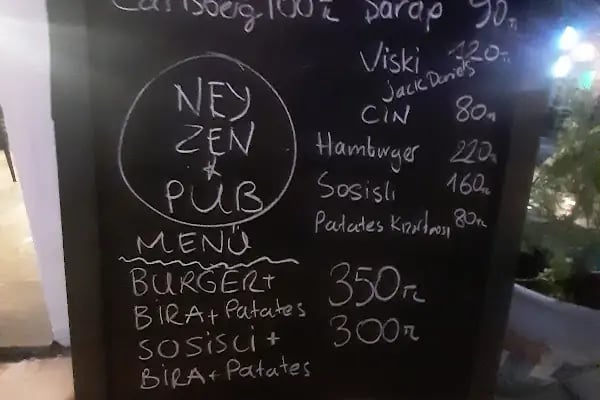 Carlsberg 100 TL Şarap 90 TL
Viski 120 TL
Jack Daniels
CİN 80 TL
Hamburger 220 TL
Sosisli 160 TL
Patates Kızartması 80 TL
NEY
ZEN
+
PUB
MENÜ
BURGER+
BİRA+Patates 350 TL
SOSİSLİ+
BİRA+Patates 300 TL